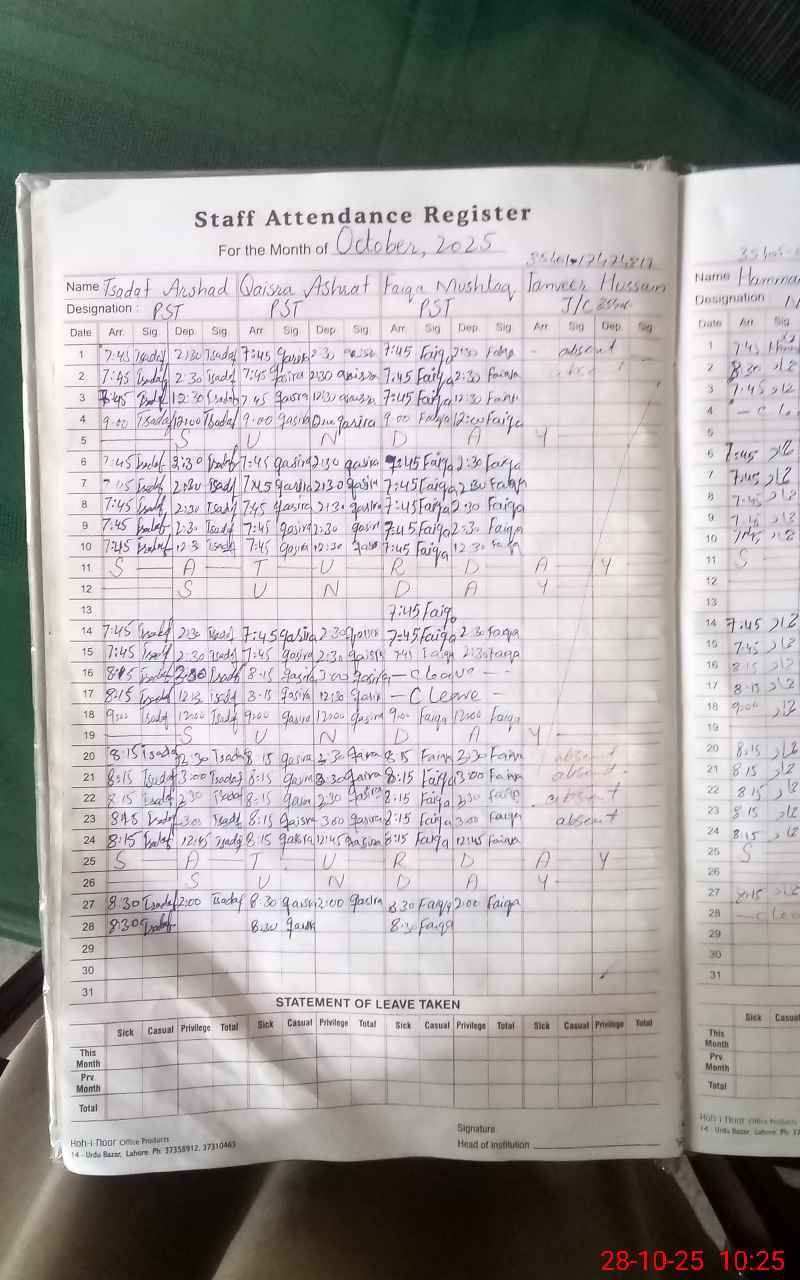 Staff Attendance Register
For the Month of October, 2025
35401-1242481
Name Tsadaf Arshad Qaisra Ashraf Faiqa Mushtaq Tanveer Hussain
Designation : PST PST PST J/C
Date Arr. Sig. Dep. Sig. Arr Sig. Dep Sig Arr Sig. Dep Sig. Arr Sig Dep Sig
1 7:45 Tsadaf 2:30 Tsadaf 7:45 qasira 2:30 qaisra 7:45 Faiqa 2:30 Faiqa - absent
2 7:45 Tsadaf 2:30 Tsadaf 7:45 qasira 2:30 qaisra 7:45 Faiqa 2:30 Faiqa
3 7:45 Tsadaf 12:30 Tsadaf 7:45 qasira 12:30 qaisra 7:45 Faiqa 12:30 Faiqa
4 9:00 Tsadaf 12:00 Tsadaf 9:00 qasira 12:00 qasira 9:00 Faiqa 12:00 Faiqa
5 S U N D A Y
6 7:45 Tsadaf 2:30 Tsadaf 7:45 qasira 2:30 qasira 7:45 Faiqa 2:30 Faiqa
7 7:45 Tsadaf 2:30 Tsadaf 7:45 qasira 2:30 qasira 7:45 Faiqa 2:30 Faiqa
8 7:45 Tsadaf 2:30 Tsadaf 7:45 qasira 2:30 qasira 7:45 Faiqa 2:30 Faiqa
9 7:45 Tsadaf 2:30 Tsadaf 7:45 qasira 2:30 qasira 7:45 Faiqa 2:30 Faiqa
10 7:45 Tsadaf 12:3 Tsadaf 7:45 qasira 12:30 qasira 7:45 Faiqa 12:30 Faiqa
11 S A T U R D A Y
12 S U N D A Y
13 7:45 Faiqa
14 7:45 Tsadaf 2:30 Tsadaf 7:45 qasira 2:30 qaisra 7:45 Faiqa 2:30 Faiqa
15 7:45 Tsadaf 2:30 Tsadaf 7:45 qasira 2:30 qaisra 7:45 Faiqa 2:30 Faiqa
16 8:15 Tsadaf Tsadaf 8:15 qasira 3:00 qasira - C leave - -
17 8:15 Tsadaf 12:3 Tsadaf 8:15 qasira 12:30 qasira - C leave -
18 9:00 Tsadaf 12:00 Tsadaf 9:00 qasira 12:00 qasira 9:00 Faiqa 12:00 Faiqa
19 S U N D A Y
20 8:15 Tsadaf 2:30 Tsadaf 8:15 qasira 2:30 qasira 8:15 Faiqa 2:30 Faiqa absent
21 8:15 Tsadaf 3:00 Tsadaf 8:15 qasira qasira 8:15 Faiqa 3:00 Faiqa absent
22 8:15 Tsadaf 2:30 Tsadaf 8:15 qasira 2:30 qasira 8:15 Faiqa 2:30 Faiqa absent
23 8:15 Tsadaf 3:00 Tsadaf 8:15 qaisra 3:00 qasira 8:15 Faiqa 3:00 Faiqa absent
24 8:15 Tsadaf 12:45 Tsadaf 8:15 qaisra 12:45 qasira 8:15 Faiqa 12:45 Faiqa
25 S A T U R D A Y
26 S U N D A Y
27 8:30 Tsadaf 2:00 Tsadaf 8:30 qasira 2:00 qasira 8:30 Faiqa 2:00 Faiqa
28 8:30 Tsadaf 8:30 qasira 8:30 Faiqa
29
30
31
STATEMENT OF LEAVE TAKEN
Sick Casual Privilege Total Sick Casual Privilege Total Sick Casual Privilege Total Sick Casual Privilege Total
This Month
Prv Month
Total
Signature
Head of Institution
Hoh-i-Noor Office Products
14 - Urdu Bazar, Lahore. Ph: 37358912, 37310463
Name
Designation
Date Arr. Sig.
1 7:45
2 8:30
3 7:45
4 - C le
5
6 7:45
7 7:45
8 7:45
9 7:45
10 7:45
11 S
12
13
14 7:45
15 7:45
16 8:15
17 8:15
18 9:00
19
20 8:15
21 8:15
22 8:15
23 8:15
24 8:15
25 S
26
27 8:15
28 - C lea
29
30
31
Sick Casual
This Month
Prv Month
Total
Hoh-i-Noor Office Products
14 - Urdu Bazar, Lahore. Ph: 37
28-10-25 10:25